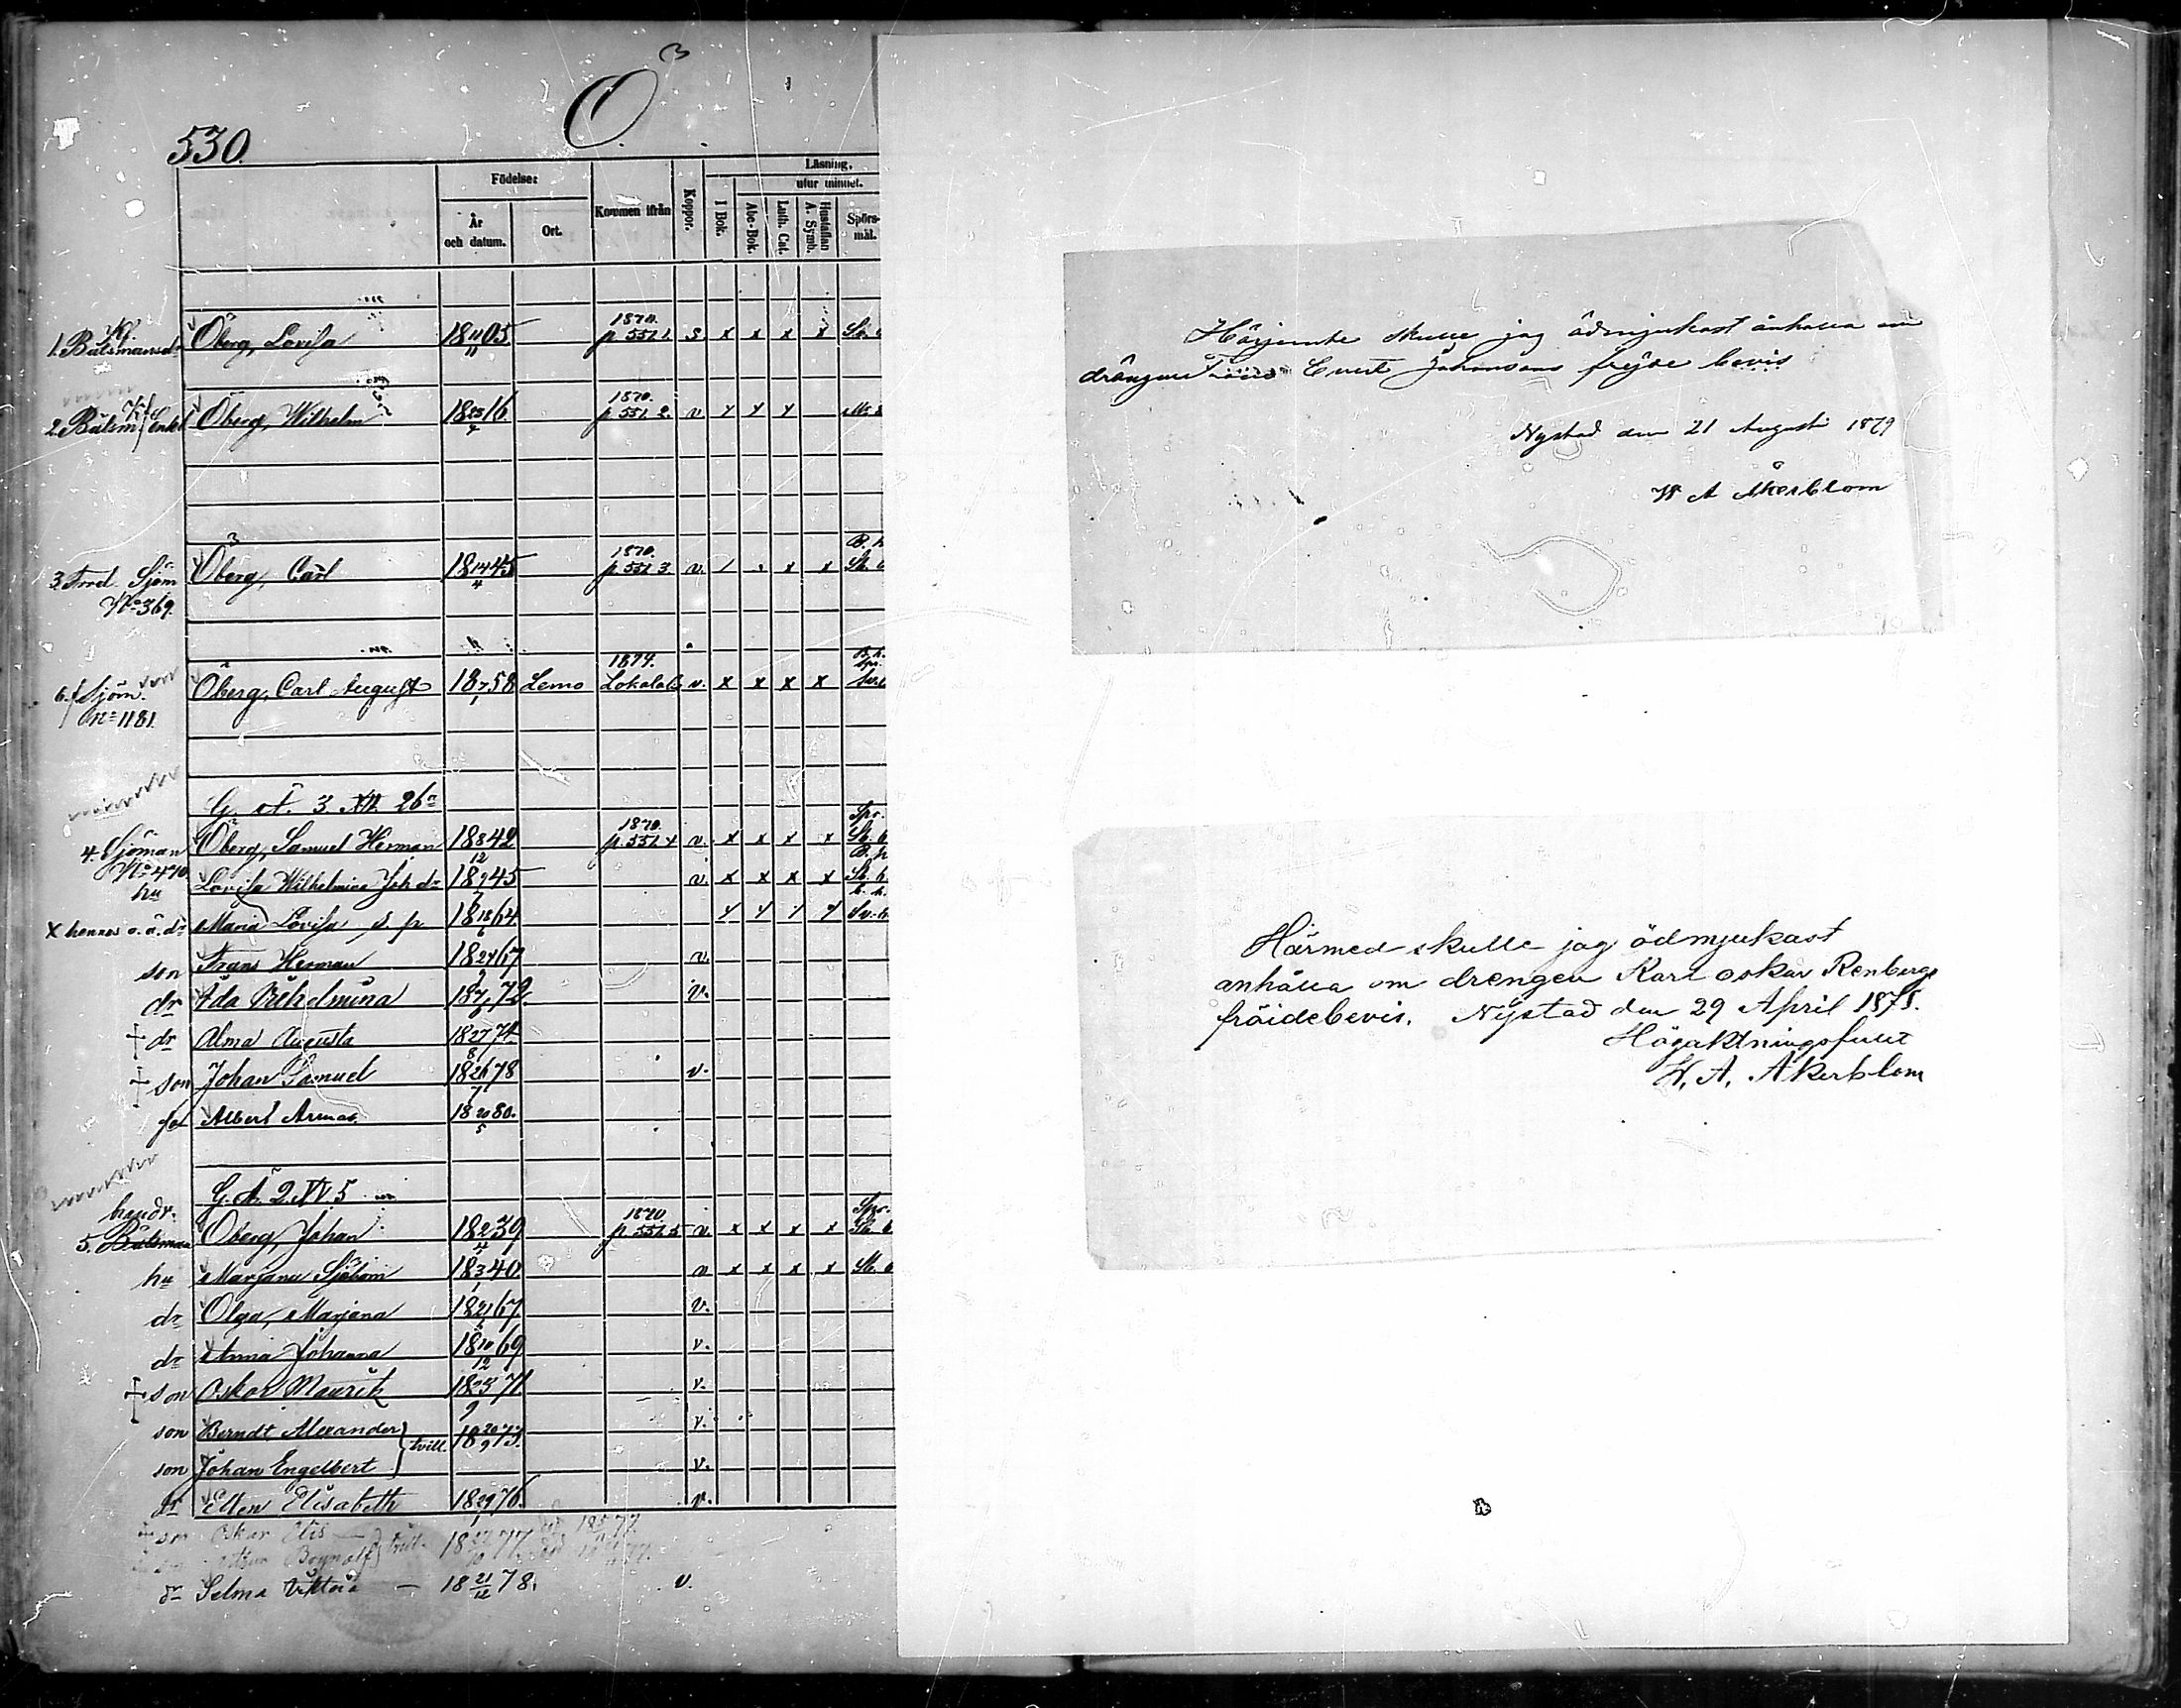 Ö
530.
Födelse:
Läsning,
utur minnet.
År
och datum.
Ort.
Kommen ifrån
Koppor.
I Bok.
Abc-Bok.
Luth. Cat.
Hustaflan
A. Symb.
Spörs-
mål.
1. Båtsmansd. Öberg, Lovisa 18 11/11 05 1870. p 551.1. s x x x x
2. Båtsm Enkl Öberg, Wilhelm 18 23/4 16 1870. p 551.2. v.
3. Sjöm Öberg, Carl 18 14/4 45 1870. p 551.3. v. x x
No 369.
6. Sjöm. Öberg, Carl August 18 7/1 58 Lemo 1874. Lokalax v. x x x x
No 1181.
G. 3. XII. 26
4. Sjöman Öberg, Samuel Herman 18 8/12 42 1870. p. 551.4 v. x x x x
No 470.
hu Lovisa Wilhelmina Joh. dr 18 9/7 45 v. x x x x
x hennes o. ä. dr Maria Lovisa 18 18/6 64
son Frans Herman 18 24/9 67 v.
dr Ida Vilhelmina 72 v.
† dr Alma Augusta 18 27/8 74
† son Johan Samuel 18 26/7 78 v.
Albert Armas. 18 20/5 80.
G. A. 2. XV. 5
handr.
5. Båtsman Öberg, Johan 18 2/4 39 1870. p. 551.5 v. x x x x
hu Marjana Sjöblom 18 3/1 40. v x x x x
dr Olga, Marjana 18 21 67 v.
dr Anna Johanna 18 10/12 69 v.
† son Oskar Maurits 18 25/9 71 v.
son Berndt Alexander tvill. 18 20/9 73. v.
son Johan Engelbert v.
dr Ellen Elisabeth 18 29/1 76. v.
son Oskar Elis tvill. 18 77
dr Selma Viktoria — 18 21/12 78. v.
Härjemte skulle jag ödmjukast anhålla om
drängen Frans Evert Johanssons frejde bevis
Nystad den 21 Augusti 1879
W A Åkerblom
Härmed skulle jag ödmjukast
anhålla om drengen Karl Oskar Renbergs
fräidebevis. Nystad den 29 April 1878.
Högaktningsfullt
W. A. Åkerblom